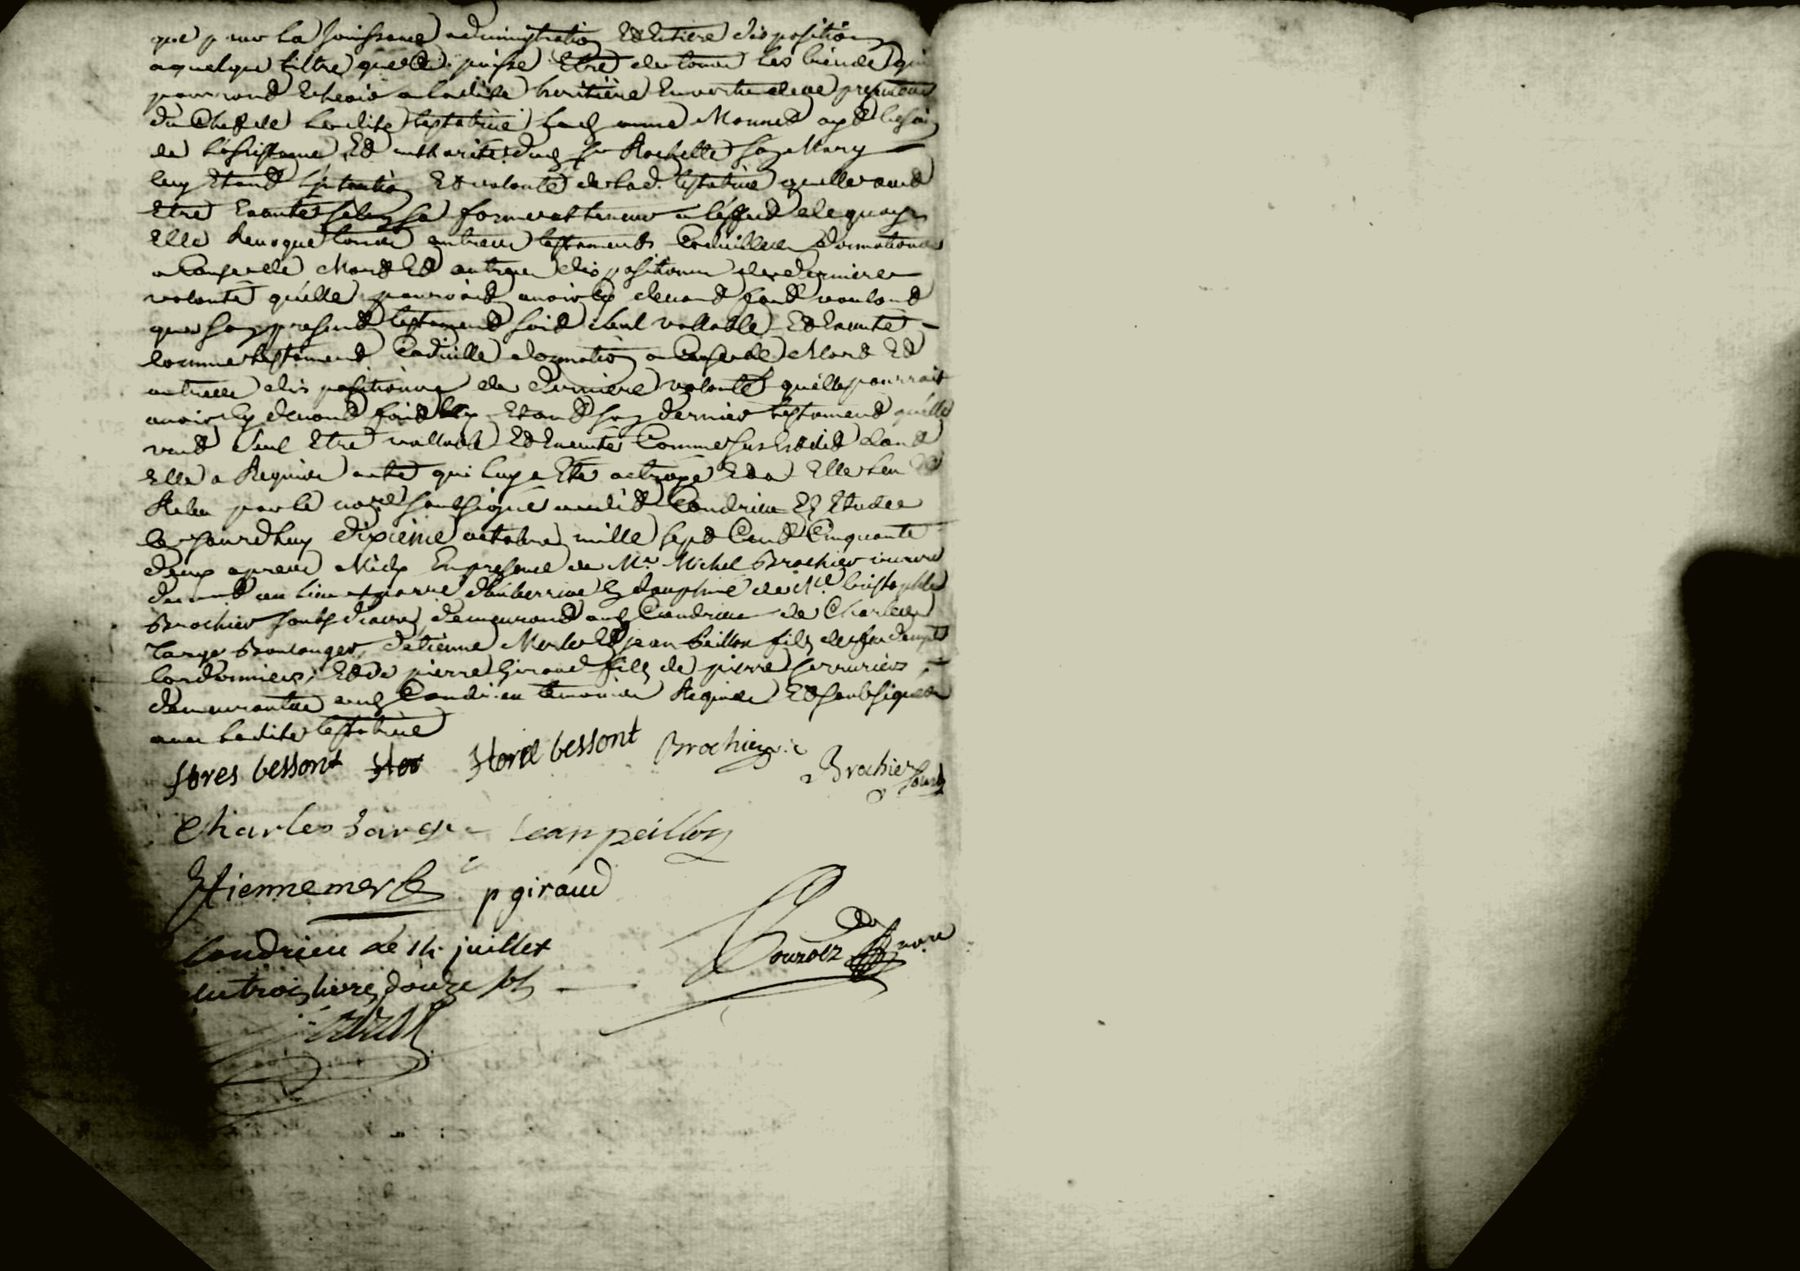 que pour la jouissance administration Et Entiere disposition
a quelque tiltre que ce puisse Etre de tous les biends qui
pourrond Echeoir a ladite heritiere En vertu de ce presend
du Chef de ladite testatrice laq anne Monned
de lassistance Et authorité dud Sr Rochette son Mary
luy Etand Lintention Et volonté de lad. testatrice quelle
Etre Executé selon sa forme et teneur a leffed de quoy
Elle Revoque tous autres testaments Codicilles donnations
a Cause de Mord Et autres dispositions de derniere
volonté qu'elle pourroid avoir cy devand faid vouland
que son presend testamend soid seul vallable Et Executé
comme testamend Codicille donnation a Cause de Mord Et
autres dispositions de derniere volonté qu'elle pourrait
avoir cy devand faid Etand son dernier testamend qu'elle
veud seul Etre vallable Et Executé Comme sus Est dit dond
Elle a Requis acte qui luy a Eté octroyé Et a Elle leu Et
Releu par le nore soubsigné audit Condrieu Et Etude
ce jourdhuy dixieme octobre mille sept Cend Cinquante
deux apres Midy En presence de Mre Michel Brochier vicaire
au lieu et parroisse en dauphiné de Mre Cristophle
Brochier soubs diacre demeurand aud Condrieu de Charles
Large Boulanger, detienne Merle Et jean peillon fils de feu
Cordonniers, Et de pierre Giraud fils de pierre serrurier
demeurantes aud Condrieu temoins Requis Et soubsignés
avec ladite testatrice
bessont bessont Brochier
Brochier sousd
Charles Large jean peillon
Etienne merle p giraud
Condrieu le 14 juillet
trois livres douze sols
nore